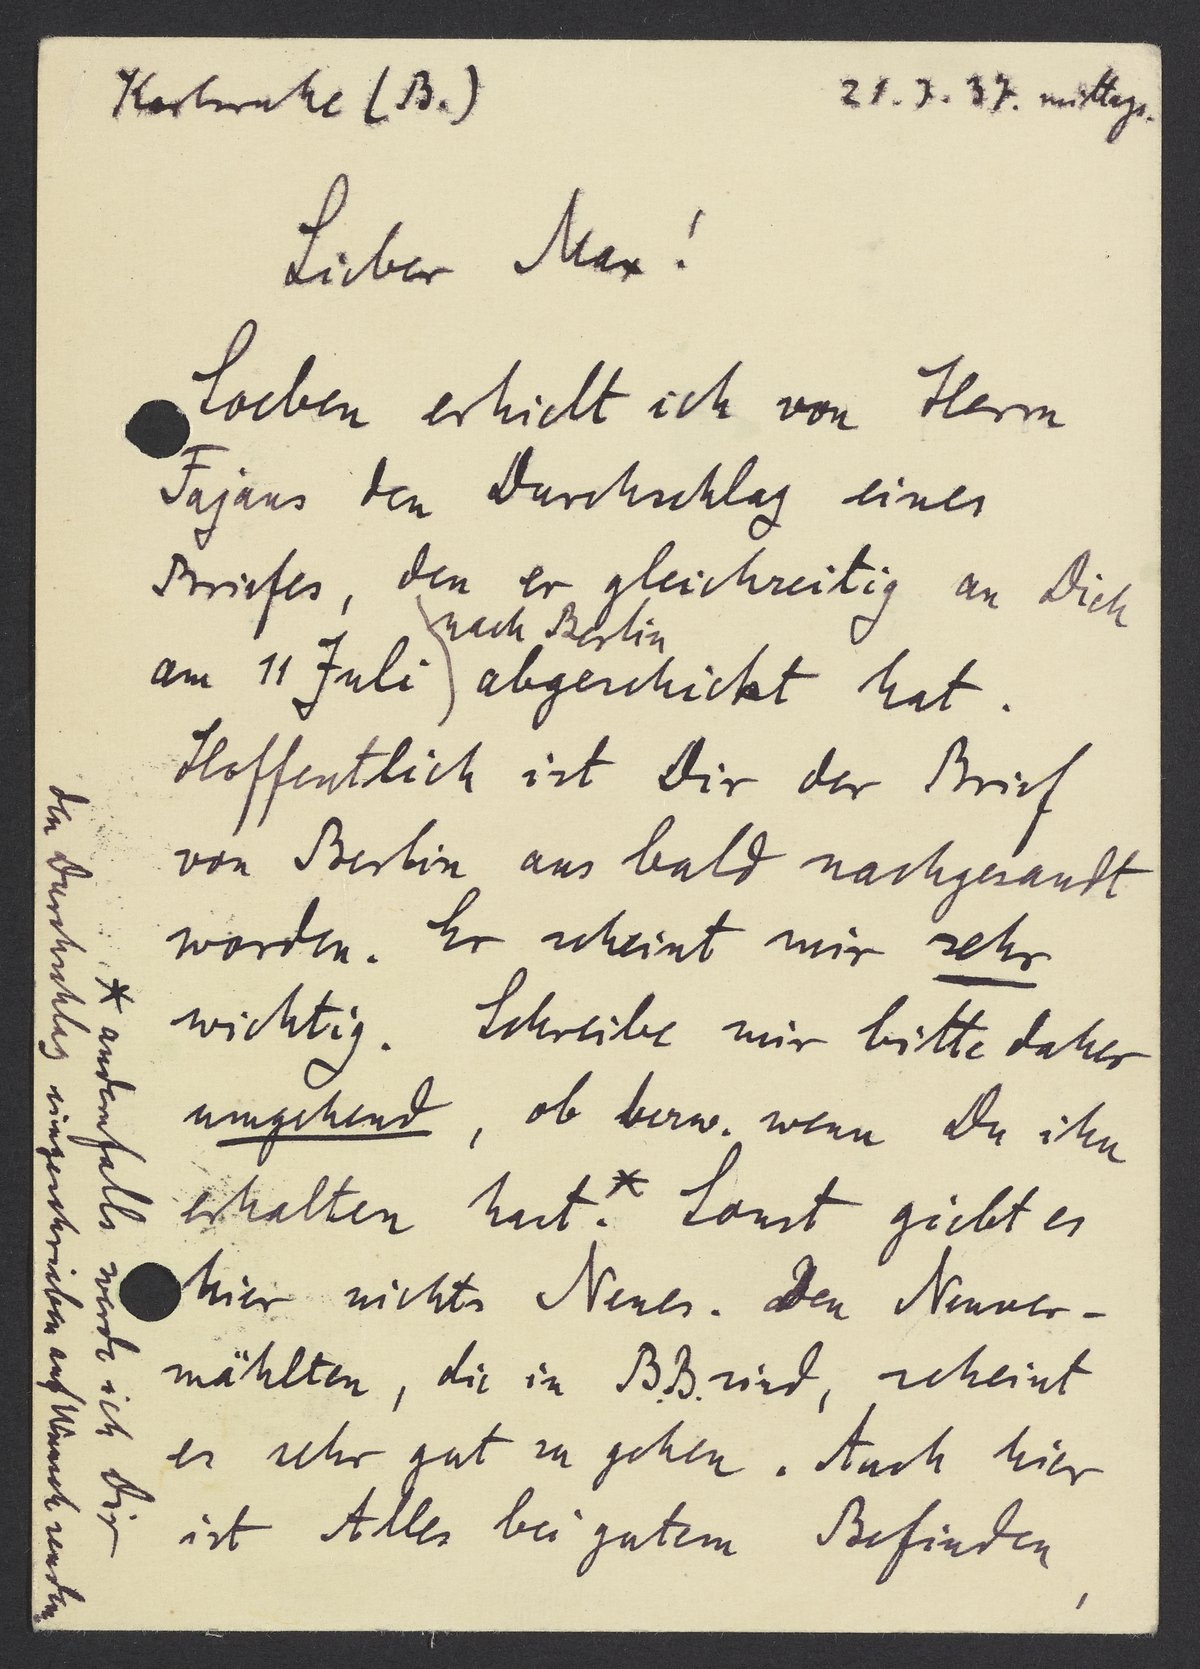 Karlsruhe (B.) 21.7.37. mittags.
Lieber Max!
Soeben erhielt ich von Herrn
Fajans den Durchschlag eines
Briefes, den er gleichzeitig an Dich
nach Berlin
am 11 Juli abgeschickt hat.
Hoffentlich ist Dir der Brief
von Berlin aus bald nachgesandt
worden. Er scheint mir sehr
wichtig. Schreibe mir bitte daher
umgehend, ob bezw. wenn Du ihn
erhalten hast.* Sonst giebt es
hier nichts Neues. Den Neuver-
mählten, die in B.B. sind, scheint
es sehr gut zu gehen. Auch hier
ist Alles bei gutem Befinden,
* andernfalls werde ich Dir
den Durchschlag eingeschrieben auf Wunsch senden